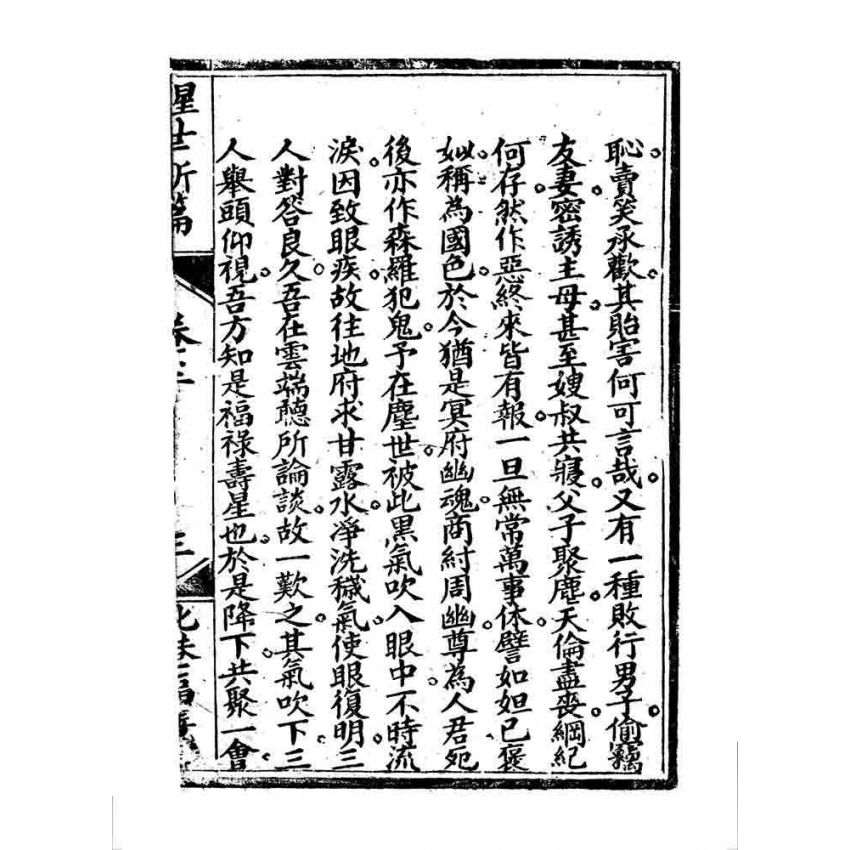 恥賣笑承歡其貽害何可言哉又有一種敗行男子偷竊
友妻密誘主母甚至嫂叔共寢父子聚麀天倫盡喪綱紀
何存然作惡終來皆有報一旦無常萬事休譬如妲已褒
姒稱為國色於今猶是冥府幽魂商紂周幽尊為人君死
後亦作森羅犯鬼予在塵世被此黑氣吹入眼中不時流
淚因致眼疾故往地府求甘露水凈洗穢氣使眼復明三
人對答良久吾在雲端聽所論談故一歎之其氣吹下三
人舉頭仰視吾方知是福祿壽星也於是降下共聚一會
醒世新篇
卷二
三